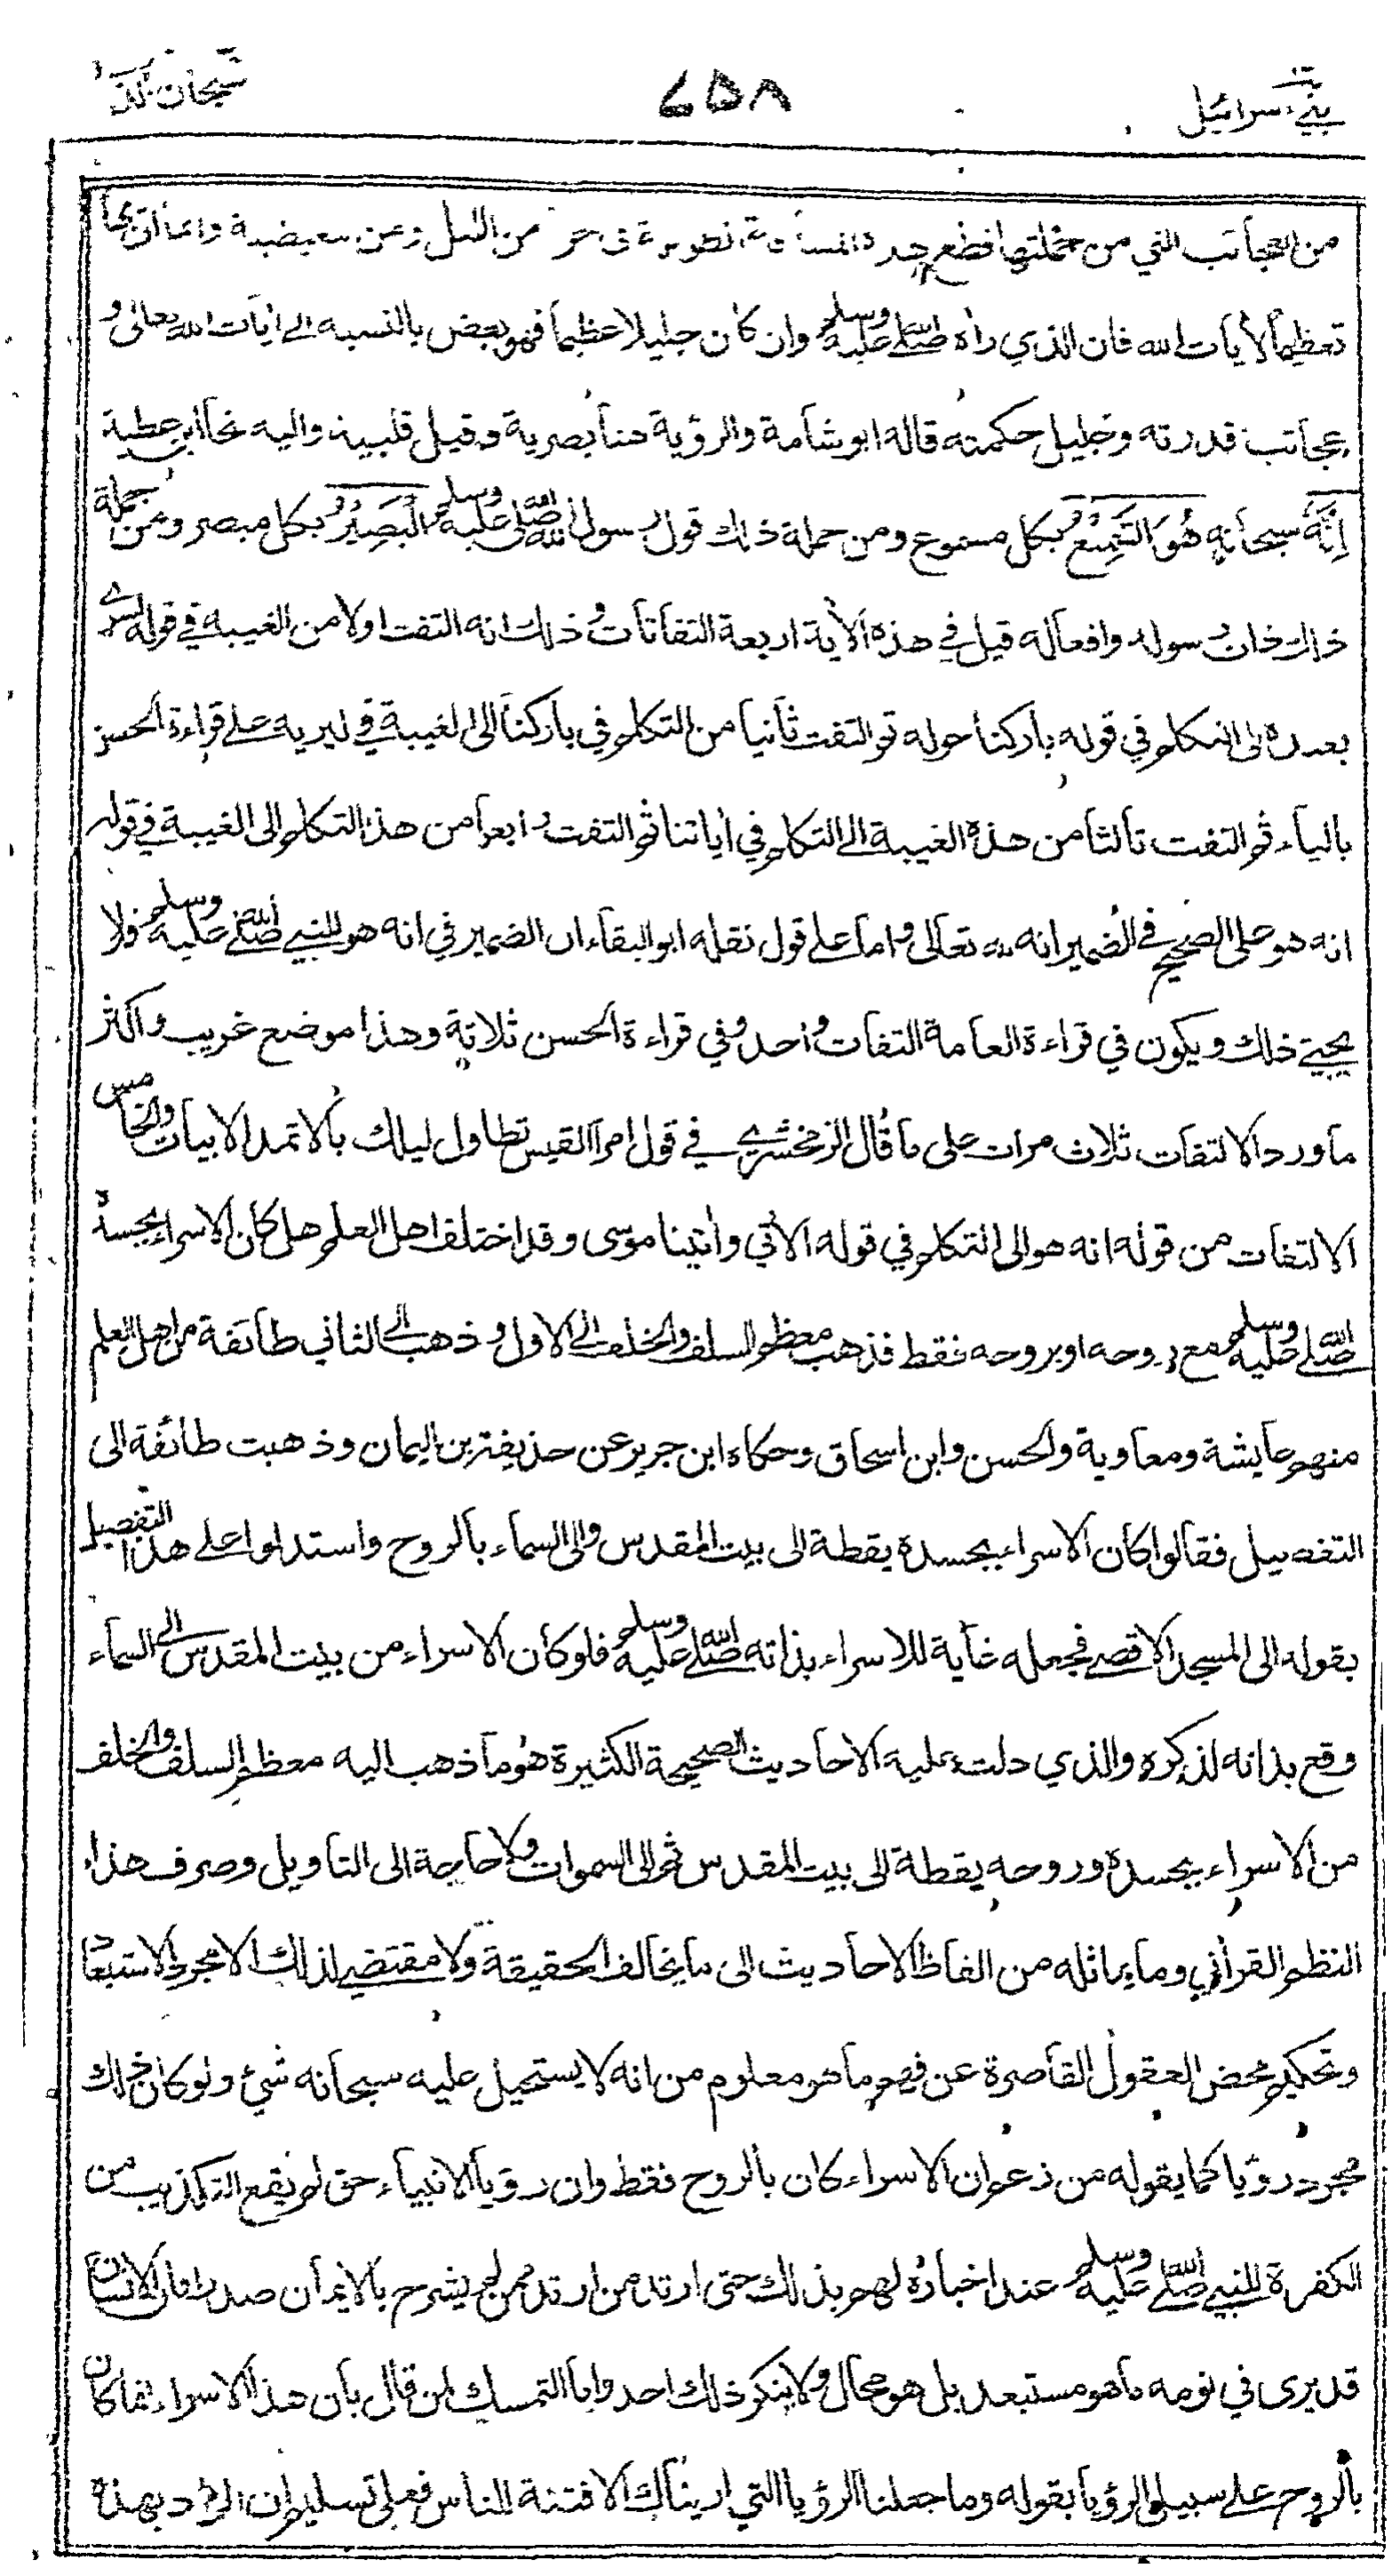 بني اسرائيل
٦٥٨
سبحان الذ
من العجائب التي من جملتها قطع هذه المسافة الطويلة في جزء من الليل ومن تبعيضية وانما اتى بها
تعظيماً لأيات الله فان الذي رأه صلى الله عليه وسلم وان كان جليلا عظيماً فهو بعض بالنسبة الى أيات الله تعالى و
عجائب قدرته وجليل حكمته قاله ابو شامة والرؤية هنا بصرية وقيل قلبية واليه نحا ابن عطية
اِنَّهٗ سبحانه هُوَ السَّمِيْعُ بكل مسموع ومن جملة ذلك قول رسول الله صلى الله عليه وسلم الْبَصِيْرُ بكل مبصر ومن جملة
ذلك ذات رسوله وافعاله قيل في هذه الأية اربعة التفاتات وذلك انه التفت اولا من الغيبة في قوله اسرى
بعبده الى التكلم في قوله باركنا حوله ثم التفت ثانيا من التكلم في باركنا الى الغيبة في ليريه على قراءة الحسن
بالياء ثم التفت ثالثا من هذه الغيبة الى التكلم في أياتنا ثم التفت رابعا من هذا التكلم الى الغيبة في قوله
انه هو على الصحيح في الضمير انه لله تعالى واما على قول نقله ابو البقاء ان الضمير في انه هو للنبي صلى الله عليه وسلم فلا
يجيئ ذلك ويكون في قراءة العامة التفات واحد وفي قراءة الحسن ثلاثة وهذا موضع غريب واكثر
ما ورد الالتفات ثلاث مرات على ما قال الزمخشري في قول امرأ القيس تطاول ليلك بالاثمد الابيات والخامس
الالتفات من قوله انه هو الى التكلم في قوله الأتي وأتينا موسى وقد اختلف اهل العلم هل كان الاسراء بجسده
صلى الله عليه وسلم مع روحه او بروحه فقط فذهب معظم السلف والخلف الى الاول وذهب الى الثاني طائفة من اهل العلم
منهم عايشة ومعاوية والحسن وابن اسحاق وحكاه ابن جرير عن حذيفة بن اليمان وذهبت طائفة الى
التفصيل فقالوا كان الاسراء بجسده يقظة الى بيت المقدس والى السماء بالروح واستدلوا على هذا التفصيل
بقوله الى المسجد الاقصى فجعله غاية للاسراء بذاته صلى الله عليه وسلم فلو كان الاسراء من بيت المقدس الى السماء
وقع بذاته لذكره والذي دلت عليه الاحاديث الصحيحة الكثيرة هو ما ذهب اليه معظم السلف والخلف
من الاسراء بجسده وروحه يقظة الى بيت المقدس ثم الى السموات ولا حاجة الى التاويل وصرف هذا
النظم القرأني وما يماثله من الفاظ الاحاديث الى ما يخالف الحقيقة ولا مقتضى لذلك الا مجرد الاستبعاد
وتحكيم محض العقول القاصرة عن فهم ما هو معلوم من انه لا يستحيل عليه سبحانه شئ ولو كان ذلك
مجرد رؤيا كما يقوله من زعم ان الاسراء كان بالروح فقط وان رؤيا الانبياء حق لم يقع التكذيب من
الكفرة للنبي صلى الله عليه وسلم عند اخباره لهم بذلك حتى ارتد من ارتد ممن لم يشرح بالايمان صدرا فان الانسان
قد يرى في نومه ما هو مستبعد بل هو محال ولا ينكر ذلك احد واما التمسك لمن قال بان هذا الاسراء انما كان
بالروح على سبيل الرؤيا بقوله وما جعلنا الرؤيا التي اريناك الا فتنة للناس فعلى تسليم ان المراد بهذه